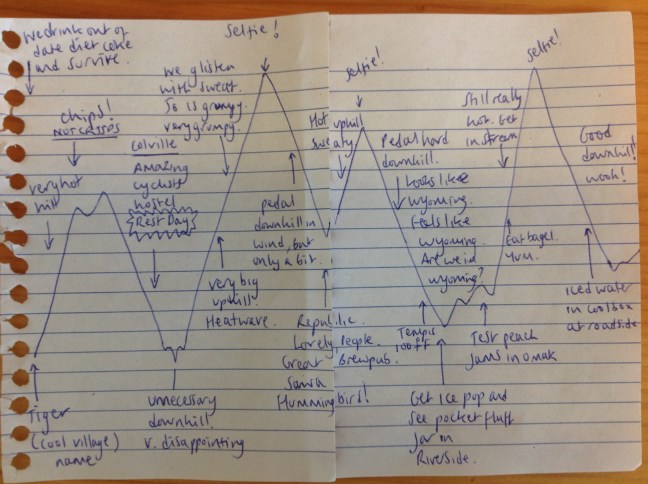 We drink out of
date diet coke
and survive.
Selfie!
we glisten
with sweat.
So is grumpy.
very grumpy.
chips!
NOT CASSOS
very hot
hill
Colville
Amazing
cyclists
hostel
Rest Day
pedal
downhill in
wind, but
only a bit.
very big
uphill.
Heatwave.
Tiger
(cool village)
name
unnecessary
downhill.
v. disappointing
Republic.
Lovely people.
Great Brewpub.
Hummingbird!
Hot uphill
sweaty.
selfie!
Pedal hard
downhill.
Looks like
wyoming
Feels like
wyoming.
Are we in
wyoming?
Temps
100ff
Get ice pop and
see pocket fluff
jar in
Riverside.
Test peach
Jams in omak
Still really
hot. Get
in stream
selfie!
Eat bagel.
Yum.
Good
downhill!
wooh!
iced water
in coolbox
at roadside